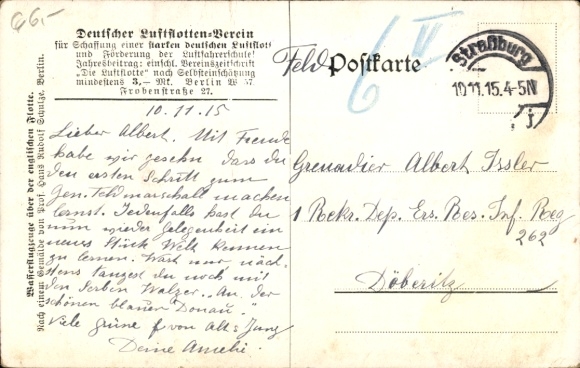 66.-
Deutscher Luftflotten-Verein
für Schaffung einer starken deutschen Luftflotte
und Förderung der Luftfahrerschule!
Jahresbeitrag: einschl. Vereinszeitschrift
"Die Luftflotte" nach Selbsteinschätzung
mindestens 3,— Mk. Berlin W 57
Frobenstraße 27.
10.11.15
Lieber Albert. Mit Freude
habe wir gesehn dass du
den ersten Schritt zum
Gen. Feldmarschall machen
lernst. Jedenfalls hast du
nun wieder Gelegenheit ein
neues Stück Welt kennen
zu lernen. Wart nur näch-
stens tanzest du noch mit
den Serben Walzer "An der
schönen blauen Donau."
Viele grüsse f von Alt & Jung
Deine Amelie.
Wasserflugzeuge über der englischen Flotte.
Nach einem Gemälde von Prof. Hans Rudolf Schulze, Berlin.
Feld Postkarte
6 V
Straßburg
10.11.15.4-5N
j.
Grenadier Albert Issler
1 Rekr. Dep. Ers. Res. Inf. Reg
262
Döberitz